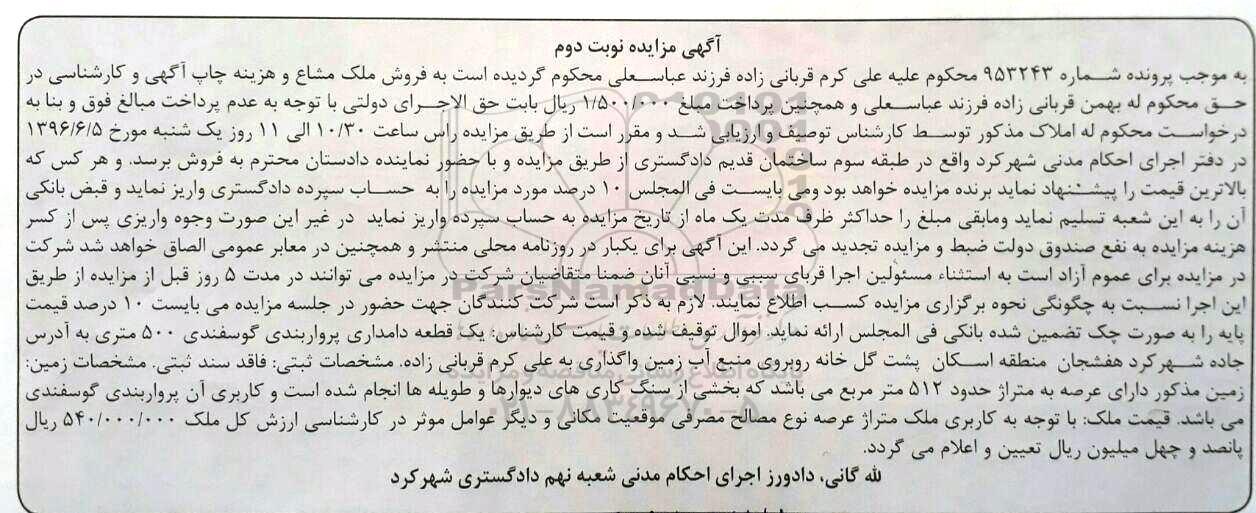 آگهی مزایده نوبت دوم
به موجب پرونده شماره ۹۵۳۲۴۳ محکوم علیه علی کرم قربانی زاده فرزند عباسعلی محکوم گردیده است به فروش ملک مشاع و هزینه چاپ آگهی و کارشناسی در
حق محکوم له بهمن قربانی زاده فرزند عباسعلی و همچنین پرداخت مبلغ ۱/۵۰۰/۰۰۰ ریال بابت حق الاجرای دولتی با توجه به عدم پرداخت مبالغ فوق و بنا به
درخواست محکوم له املاک مذکور توسط کارشناس توصیف و ارزیابی شد و مقرر است از طریق مزایده راس ساعت ۱۰/۳۰ الی ۱۱ روز یک شنبه مورخ ۱۳۹۶/۶/۵
در دفتر اجرای احکام مدنی شهرکرد واقع در طبقه سوم ساختمان قدیم دادگستری از طریق مزایده و با حضور نماینده دادستان محترم به فروش برسد. و هر کس که
بالاترین قیمت را پیشنهاد نماید برنده مزایده خواهد بود ومی بایست فی المجلس ۱۰ درصد مورد مزایده را به حساب سپرده دادگستری واریز نماید و قبض بانکی
آن را به این شعبه تسلیم نماید ومابقی مبلغ را حداکثر ظرف مدت یک ماه از تاریخ مزایده به حساب سپرده واریز نماید در غیر این صورت وجوه واریزی پس از کسر
هزینه مزایده به نفع صندوق دولت ضبط و مزایده تجدید می گردد. این آگهی برای یکبار در روزنامه محلی منتشر و همچنین در معابر عمومی الصاق خواهد شد شرکت
در مزایده برای عموم آزاد است به استثناء مسئولین اجرا قربای سببی و نسبی آنان ضمنا متقاضیان شرکت در مزایده می توانند در مدت ۵ روز قبل از مزایده از طریق
این اجرا نسبت به چگونگی نحوه برگزاری مزایده کسب اطلاع نمایند. لازم به ذکر است شرکت کنندگان جهت حضور در جلسه مزایده می بایست ۱۰ درصد قیمت
پایه را به صورت چک تضمین شده بانکی فی المجلس ارائه نماید. اموال توقیف شده و قیمت کارشناس: یک قطعه دامداری پرواربندی گوسفندی ۵۰۰ متری به آدرس
جاده شهرکرد هفشجان منطقه اسکان پشت گل خانه روبروی منبع آب زمین واگذاری به علی کرم قربانی زاده. مشخصات ثبتی: فاقد سند ثبتی. مشخصات زمین:
زمین مذکور دارای عرصه به متراژ حدود ۵۱۲ متر مربع می باشد که بخشی از سنگ کاری های دیوارها و طویله ها انجام شده است و کاربری آن پرواربندی گوسفندی
می باشد. قیمت ملک: با توجه به کاربری ملک متراژ عرصه نوع مصالح مصرفی موقعیت مکانی و دیگر عوامل موثر در کارشناسی ارزش کل ملک ۵۴۰/۰۰۰/۰۰۰ ریال
پانصد و چهل میلیون ریال تعیین و اعلام می گردد.
لله گانی، دادورز اجرای احکام مدنی شعبه نهم دادگستری شهرکرد
ParsNamadData
پایگاه اطلاع رسانی مناقصه و مزایده
۰۲۱-۸۸۳۴۹۶۷۰-۵